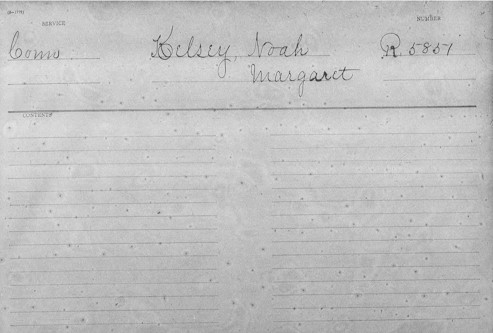 SERVICE
NUMBER
Conn. Kelsey, Noah R. 5851
Margaret
CONTENTS